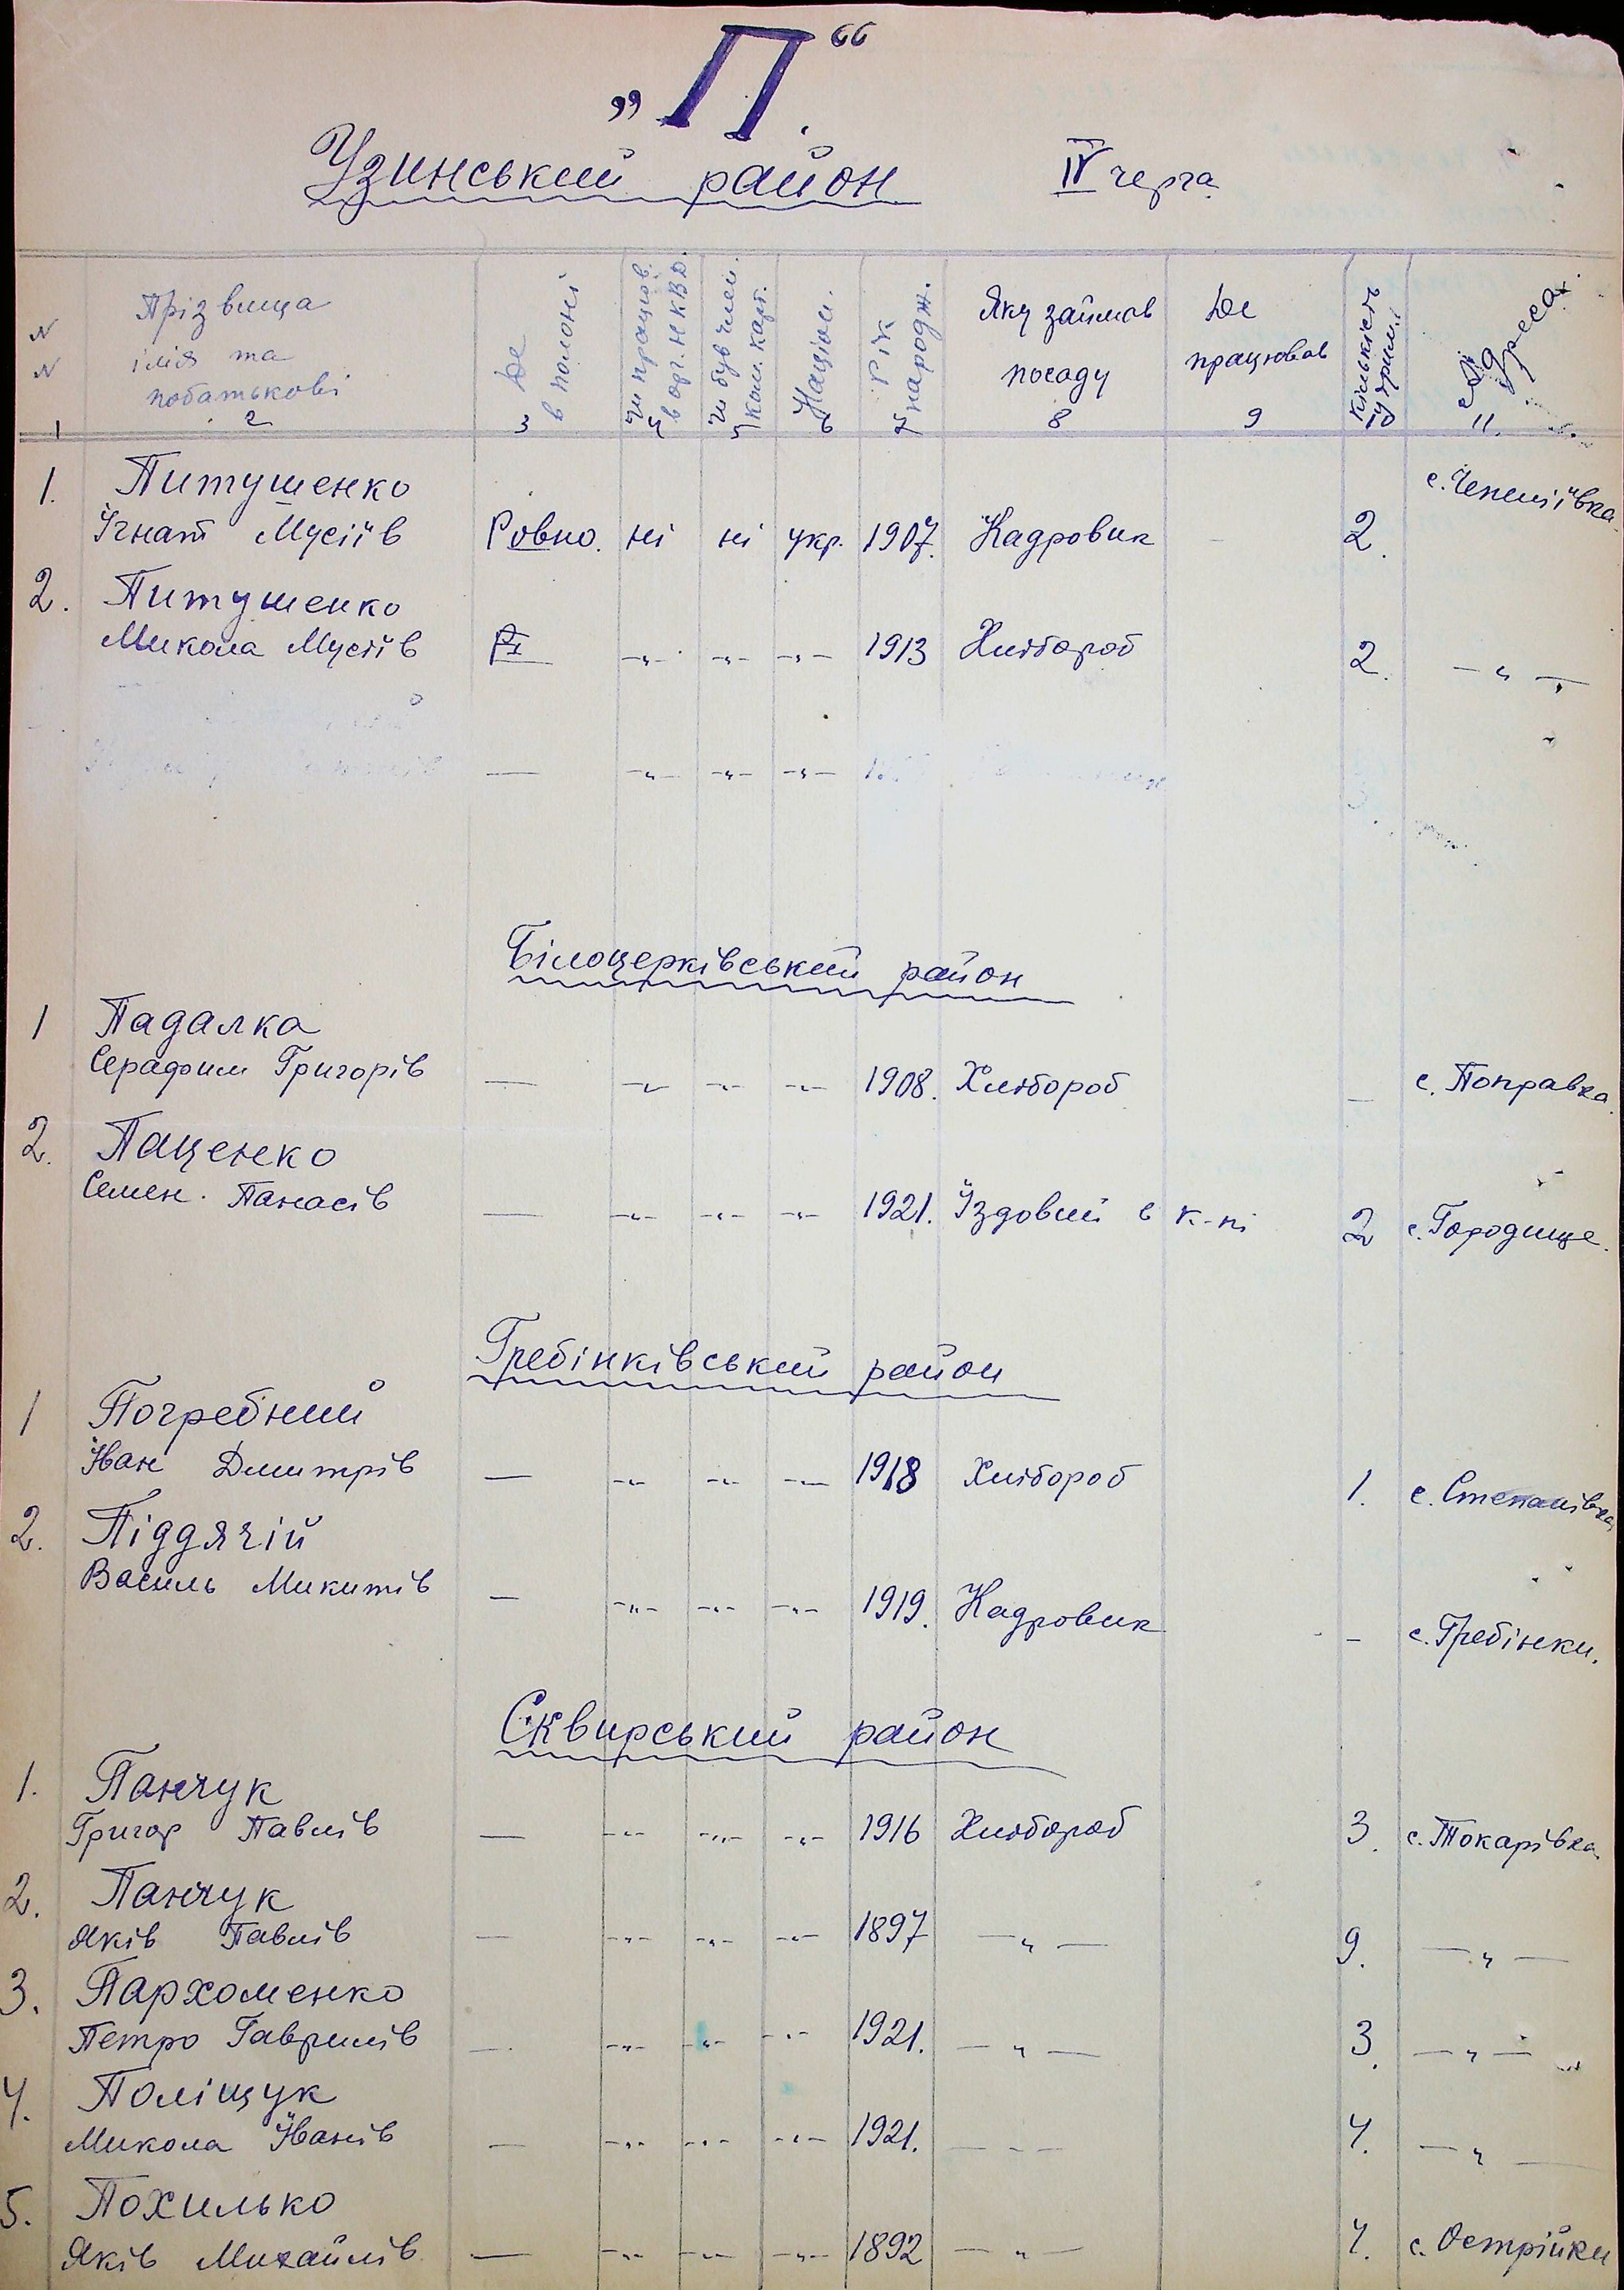 „П.“
Узинський район IV черга
N N Прізвища імія та побатькові Де в полоні чи працюв. в орг. НКВД. чи був член. ком. парт. Націон. Рік народж. Яку займав посаду Де працював кількість утрим. Адреса.
1 2 3 4 5 6 7 8 9 10 11.
1. Питушенко с. Чепеліївка
Ігнат Мусіїв Ровно. ні ні укр. 1907. Кадровик - 2.
2. Питушенко
Микола Мусіїв РІ -„- -„- -„- 1913 Хлібороб 2. -„-
— -„- -„- -„-
Білоцерківський район
1 Падалка
Серафим Григорів — -„- -„- -„- 1908. Хлібороб — с. Поправка.
2. Паценко
Семен. Панасів — -„- -„- -„- 1921. Їздовий в к-пі 2 с. Городище.
Гребінківський район
1 Погребний
Іван Дмитрів — -„- -„- -„- 1918 Хлібороб 1. с. Степанівка
2. Піддячій
Василь Микитів — -„- -„- -„- 1919. Кадровик - с. Гребінки.
Сквирський район
1. Панчук
Григор Павлів — -„- -„- -„- 1916 Хлібороб 3. с. Токарівка
2. Панчук
Яків Павлів — -„- -„- -„- 1897 -„- 9. -„-
3. Пархоменко
Петро Гаврилів — -„- -„- -„- 1921. -„- 3. -„-
4. Поліщук
Микола Іванів — -„- -„- -„- 1921. -„- 4. -„-
5. Похилько
Яків Михайлів — -„- -„- -„- 1892 -„- 4. с. Острійки